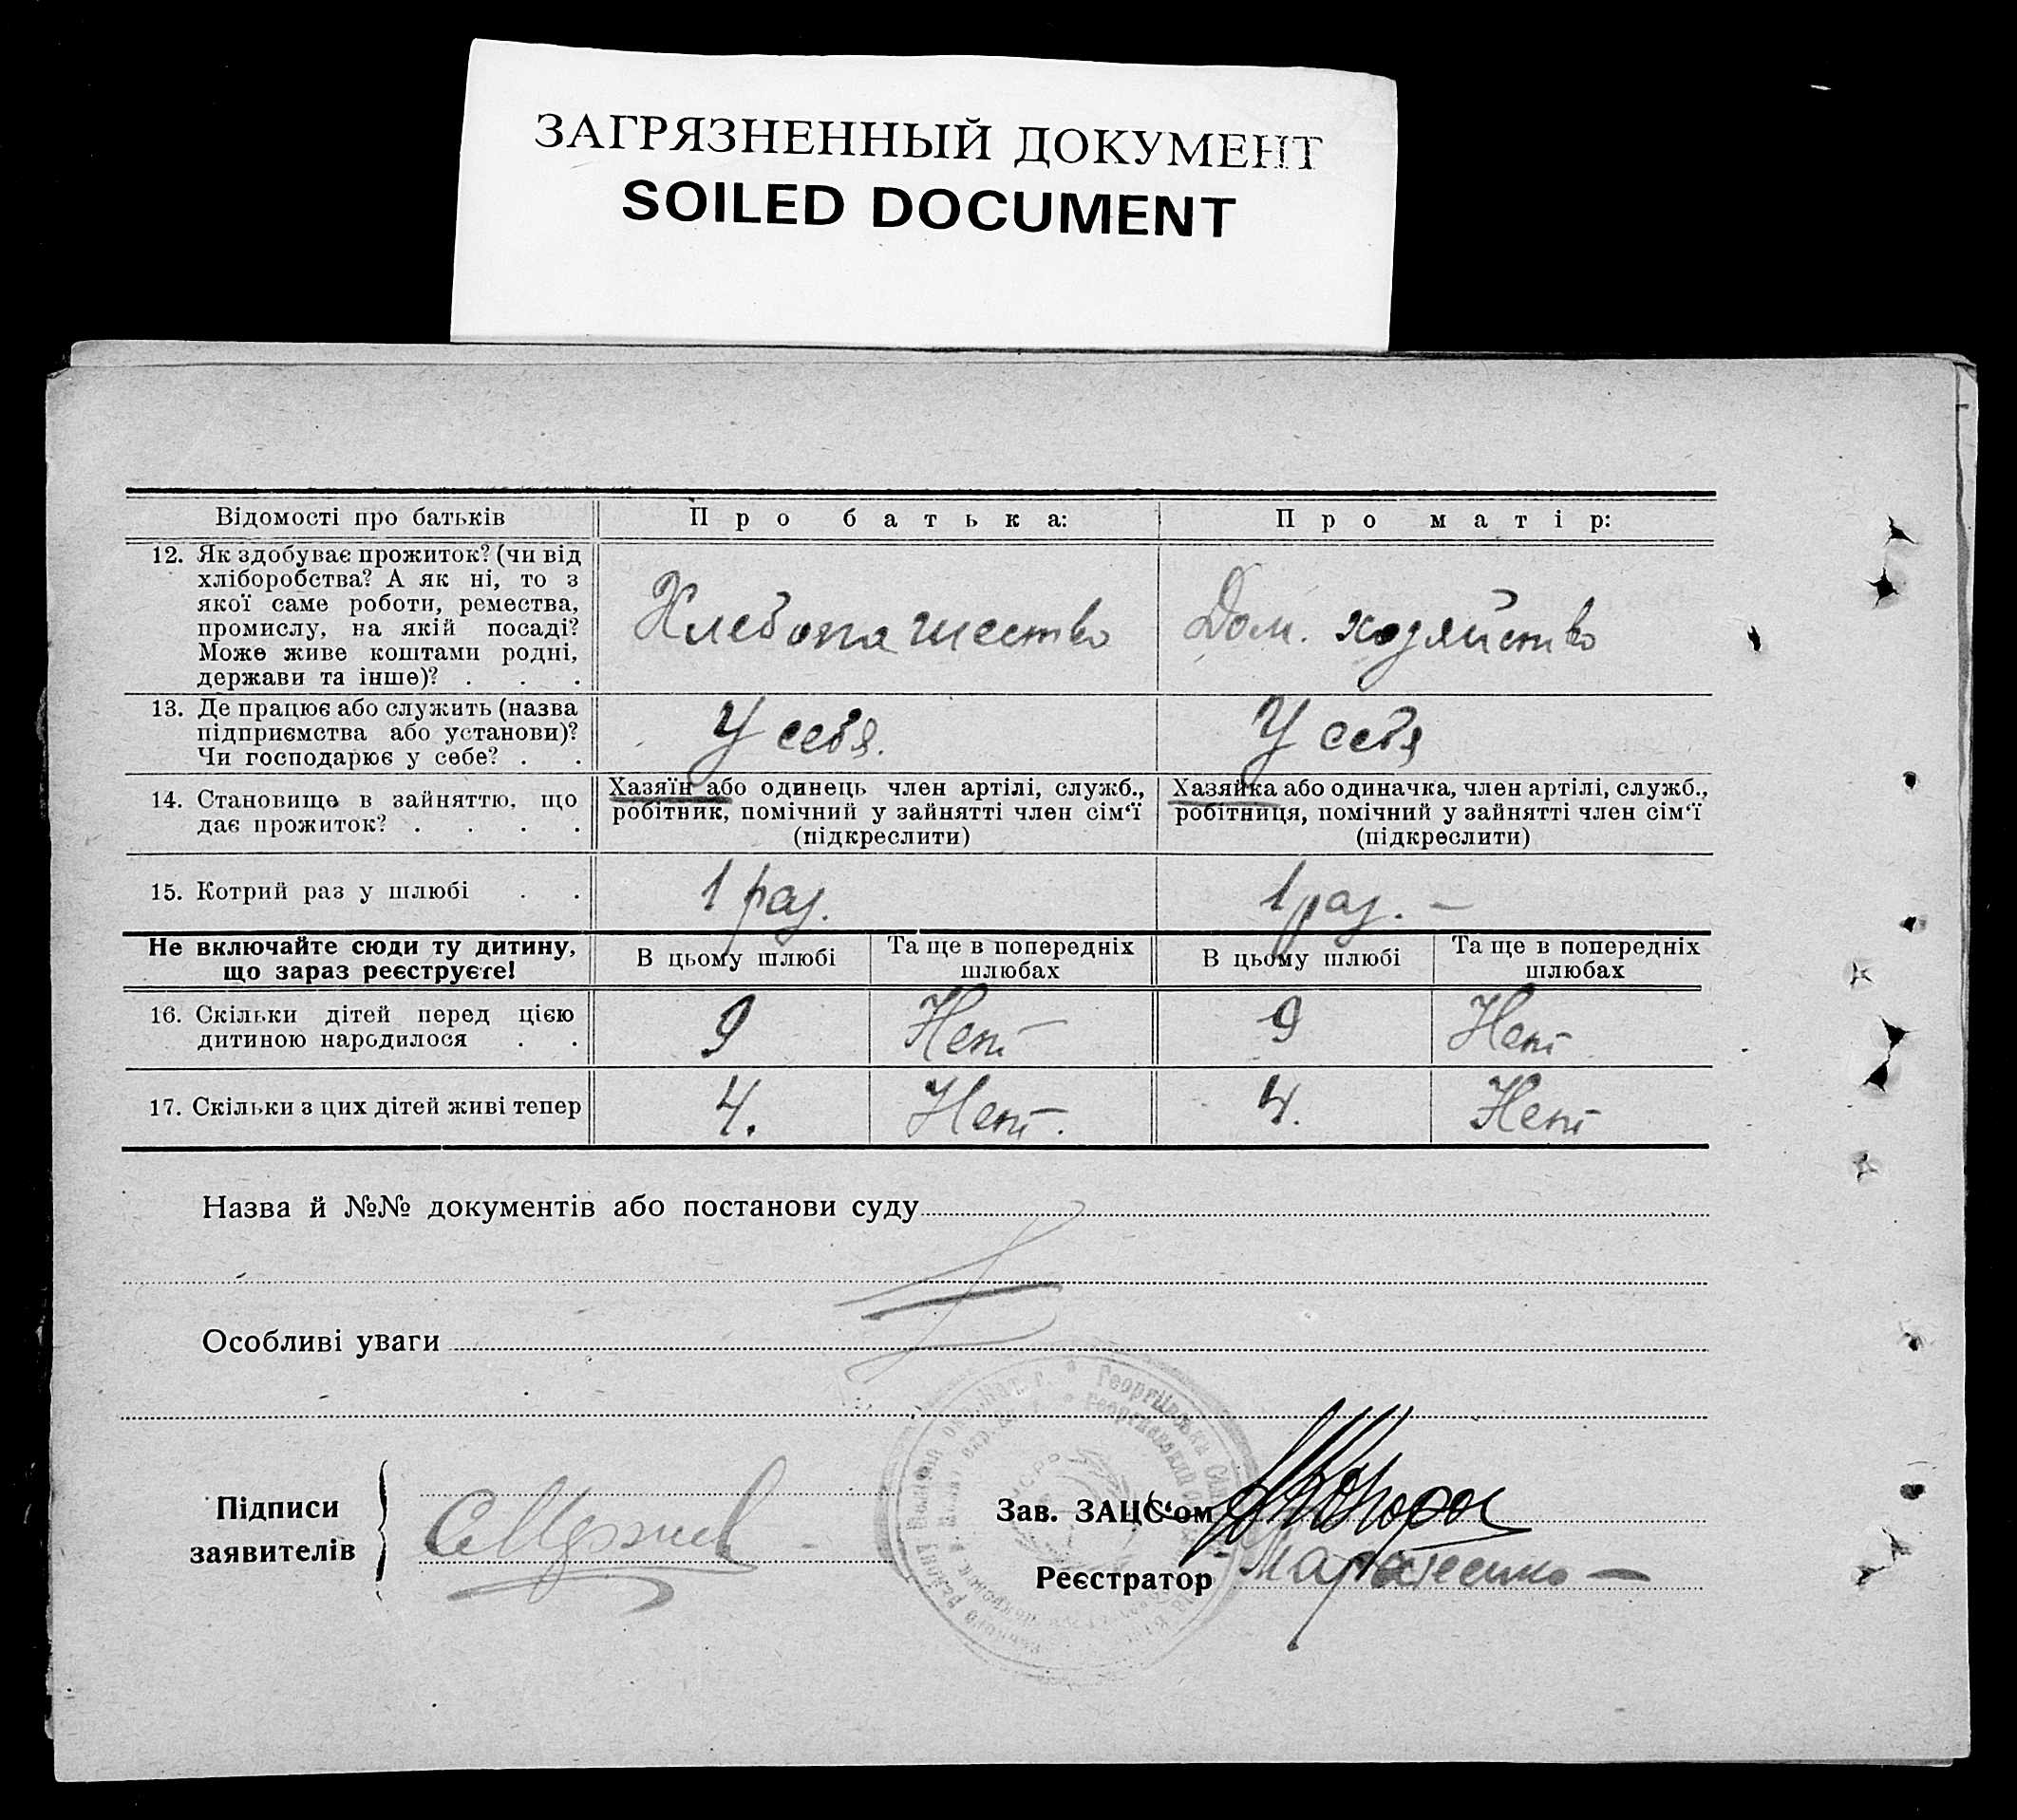 ЗАГРЯЗНЕННЫЙ ДОКУМЕНТ
SOILED DOCUMENT
Відомості про батьків
Про батька:
Про матір:
12. Як здобуває прожиток? (чи від
хліборобства? А як ні, то з
якої саме роботи, ремества,
промислу, на якій посаді?
Може живе коштами родні,
держави та інше)? . . .
Хлебопашество
Дом. хозяйство
13. Де працює або служить (назва
підприємства або установи)?
Чи господарює у себе? . .
У себя.
У себя
14. Становище в зайняттю, що
дає прожиток? . . . .
Хазяїн або одинець член артілі, служб.,
робітник, помічний у зайнятті член сім‘ї
(підкреслити)
Хазяйка або одиначка, член артілі, служб.,
робітниця, помічний у зайнятті член сім‘ї
(підкреслити)
15. Котрий раз у шлюбі . .
1 раз.
1 раз. —
Не включайте сюди ту дитину,
що зараз реєструєте!
В цьому шлюбі
Та ще в попередніх
шлюбах
В цьому шлюбі
Та ще в попередніх
шлюбах
16. Скільки дітей перед цією
дитиною народилося . .
9
Нет
9
Нет
17. Скільки з цих дітей живі тепер
4.
Нет.
4.
Нет
Назва й №№ документів або постанови суду
Особливі уваги
Підписи
заявителів
Зав. ЗАЦС‘ом
Реєстратор